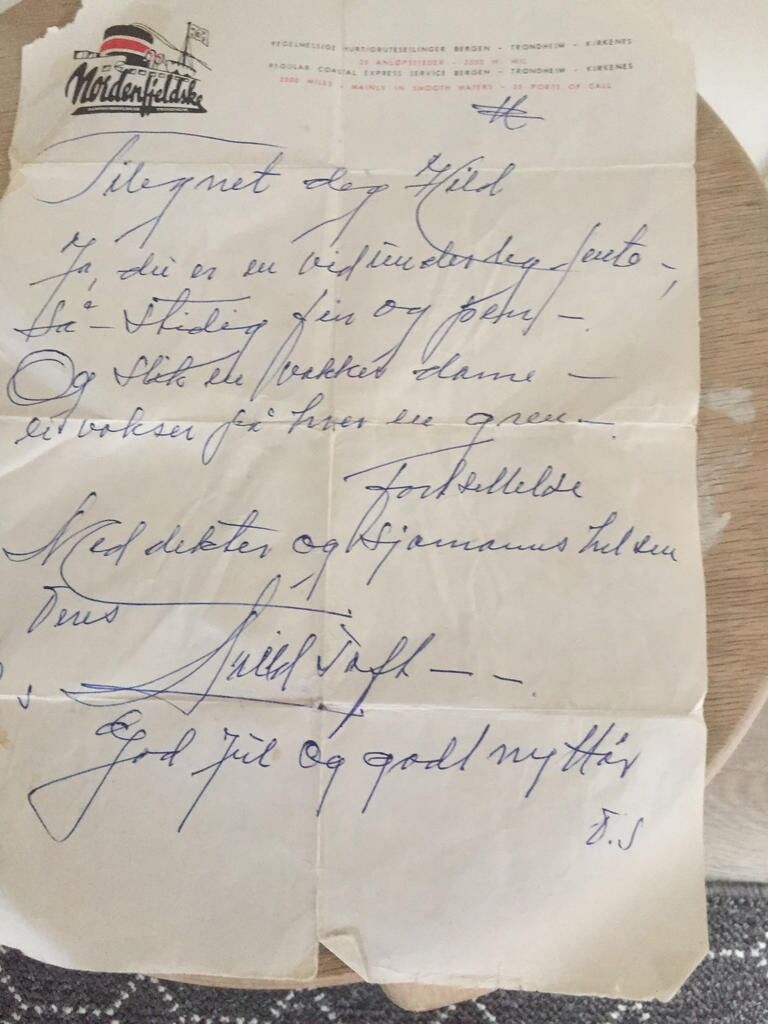 Nordenfjeldske
REGELMESSIGE HURTIGRUTESEILINGER BERGEN - TRONDHEIM - KIRKENES
35 ANLØPSSTEDER - 2500 N. MIL
REGULAR COASTAL EXPRESS SERVICE BERGEN - TRONDHEIM - KIRKENES
2500 MILES - MAINLY IN SMOOTH WATERS - 35 PORTS OF CALL
Tilegnet deg Hild
Ja, du er en vidunderleg jente,
Så - stidig fin og pen -
Og slik en vakker dame -
ei vokser på hver en gren -
Fortsettelse
Med dekter og sjømanns hilsen
Deres
Toft - - -
God Jul og godt nyttår
D.S